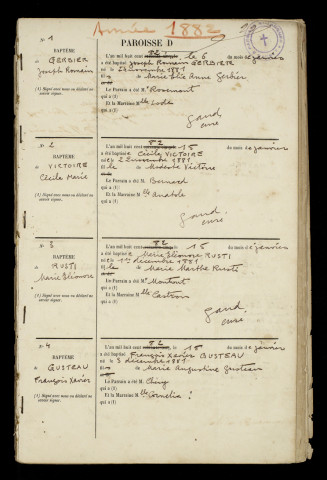 Année 1882
PAROISSE D
N° 1
BAPTÊME
de GERBIER
Joseph Romain
(1) Signé avec nous ou déclaré ne
savoir signer.
L'an mil huit cent 82, le 6 du mois de janvier
a été baptisé Joseph Romain GERBIER
né le 24 novembre 1881
de Marie Elie Anne Gerbier
Le Parrain a été M. Rosemont
qui a (1)
Et la Marraine M lle
qui a (1)
gand
curé
N° 2
BAPTÊME
de VICTOIRE
Cécile Marie
(1) Signé avec nous ou déclaré ne
savoir signer.
L'an mil huit cent 82, le 15 du mois de janvier
a été baptisé e Cécile VICTOIRE
né e le 22 novembre 1881
de Modeste Victoire
Le Parrain a été M. Bernard
qui a (1)
Et la Marraine M lle Anatole
qui a (1)
gand
curé
N° 3
BAPTÊME
de RUSTI
Marie Eléonore
(1) Signé avec nous ou déclaré ne
savoir signer.
L'an mil huit cent 82, le 15 du mois de janvier
a été baptisé e Marie Eléonore RUSTI
né e le 1er décembre 1881
de Marie Marthe Rusti
Le Parrain a été M. Montout
qui a (1)
Et la Marraine M lle
qui a (1)
gand
curé
N° 4
BAPTÊME
de GUSTEAU
François Xavier
(1) Signé avec nous ou déclaré ne
savoir signer.
L'an mil huit cent 82, le 18 du mois de janvier
a été baptisé François Xavier GUSTEAU
né le 3 décembre 1881
de Marie Augustine Gusteau
Le Parrain a été M. Chéry
qui a (1)
Et la Marraine M lle Cornélia
qui a (1)